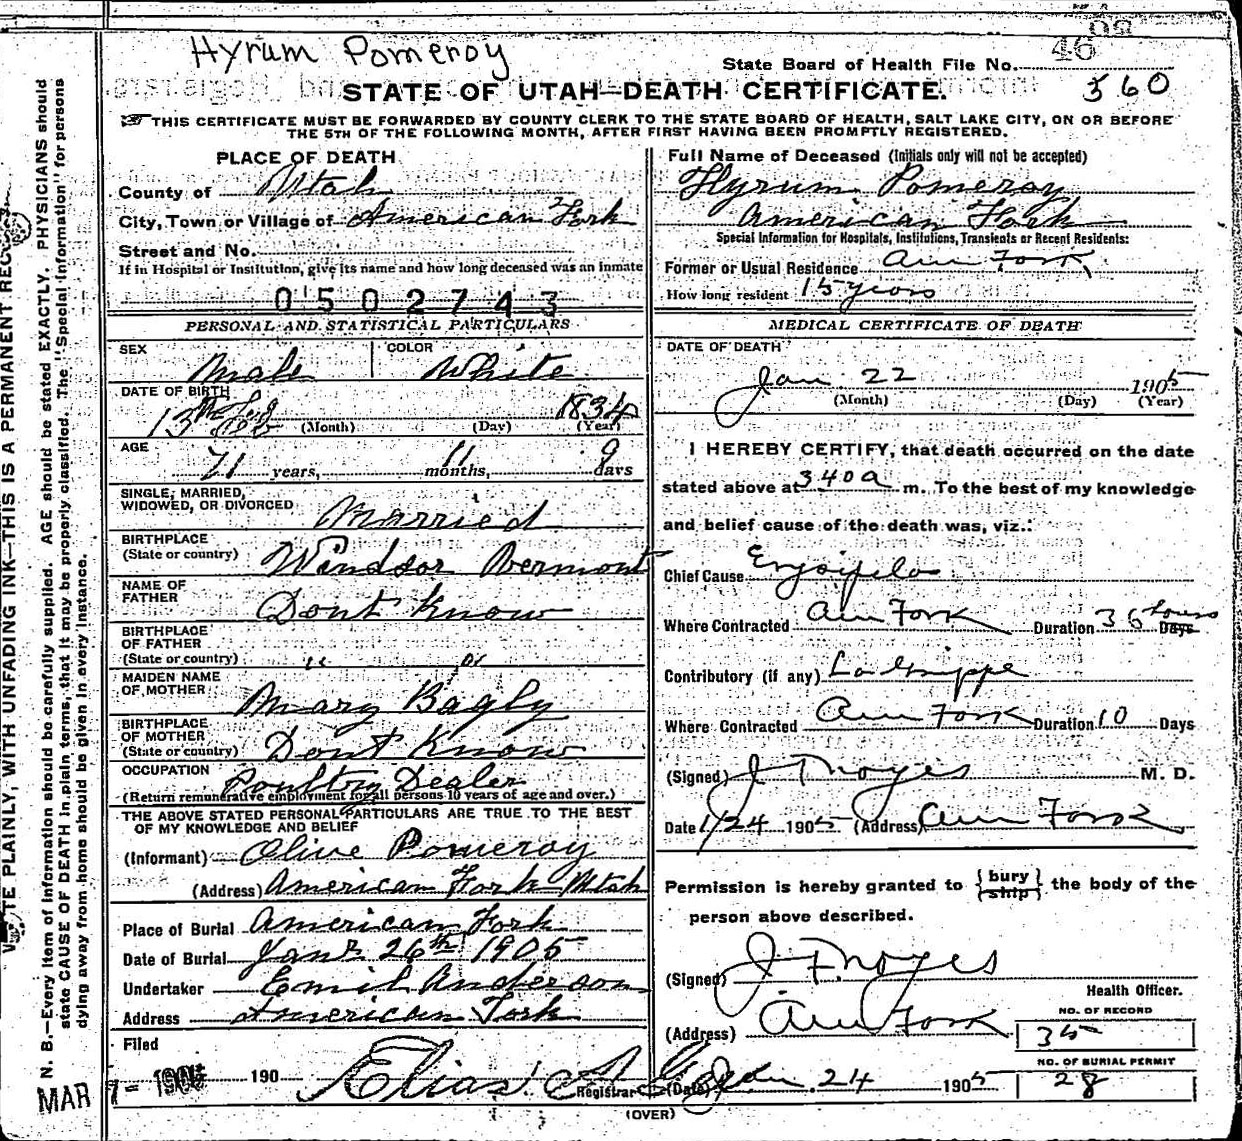 Hyrum Pomeroy
State Board of Health File No. 46
360
STATE OF UTAH—DEATH CERTIFICATE.
THIS CERTIFICATE MUST BE FORWARDED BY COUNTY CLERK TO THE STATE BOARD OF HEALTH, SALT LAKE CITY, ON OR BEFORE
THE 5TH OF THE FOLLOWING MONTH, AFTER FIRST HAVING BEEN PROMPTLY REGISTERED.
PLACE OF DEATH
County of Utah
City, Town or Village of American Fork
Street and No.
If in Hospital or Institution, give its name and how long deceased was an inmate
0502743
PERSONAL AND STATISTICAL PARTICULARS
SEX Male COLOR White
DATE OF BIRTH
13 Feb 1834
(Month) (Day) (Year)
AGE
71 years, 11 months, 9 days
SINGLE, MARRIED,
WIDOWED, OR DIVORCED Married
BIRTHPLACE
(State or country) Windsor Vermont
NAME OF
FATHER Dont Know
BIRTHPLACE
OF FATHER
(State or country) " "
MAIDEN NAME
OF MOTHER Mary Bagly
BIRTHPLACE
OF MOTHER
(State or country) Dont Know
OCCUPATION Poultry Dealer
(Return remunerative employment for all persons 10 years of age and over.)
THE ABOVE STATED PERSONAL PARTICULARS ARE TRUE TO THE BEST
OF MY KNOWLEDGE AND BELIEF
(Informant) Olive Pomeroy
(Address) American Fork Utah
Place of Burial American Fork
Date of Burial Janr 26th 1905
Undertaker Emil Anderson
Address American Fork
Filed
MAR 7- 190 Elias A
Registrar
Full Name of Deceased (Initials only will not be accepted)
Hyrum Pomeroy
American Fork
Special Information for Hospitals, Institutions, Transients or Recent Residents:
Former or Usual Residence Am Fork
How long resident 15 years
MEDICAL CERTIFICATE OF DEATH
DATE OF DEATH
Jan 22 1905
(Month) (Day) (Year)
I HEREBY CERTIFY, that death occurred on the date
stated above at 340 a m. To the best of my knowledge
and belief cause of the death was, viz.:
Chief Cause Erysipelas
Where Contracted Am Fork Duration 36 hours Days
Contributory (if any) La Grippe
Where Contracted Am Fork Duration 10 Days
(Signed) J F Noyes M. D.
Date 1/24 1905 (Address) Am Fork
Permission is hereby granted to { bury ship } the body of the
person above described.
(Signed) J F Noyes
Health Officer.
(Address) Am Fork
NO. OF RECORD
35
NO. OF BURIAL PERMIT
28
(Date) Jan 24 1905
(OVER)
N. B.—Every item of information should be carefully supplied. AGE should be stated EXACTLY. PHYSICIANS should
state CAUSE OF DEATH in plain terms, that it may be properly classified. The "Special Information" for persons
dying away from home should be given in every instance.
TE PLAINLY, WITH UNFADING INK—THIS IS A PERMANENT REC